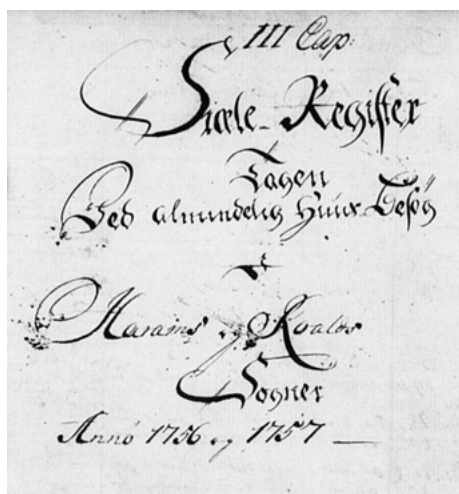 III Cap:
Siæle-Register
Tagen
Ved almindelig Huus Besøg
i
Harams og Roalds
Sogner
Anno 1756 og 1757 —